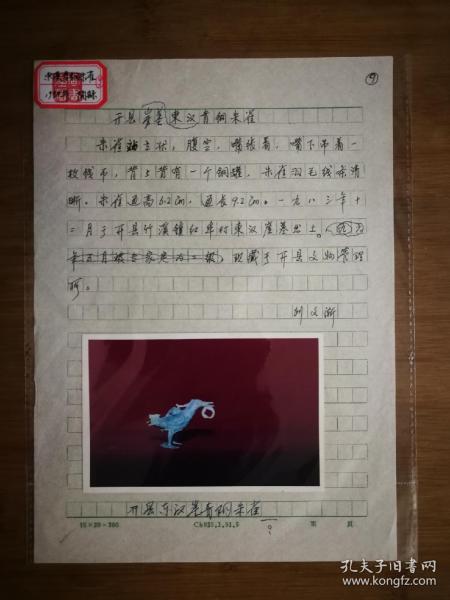 东汉青铜朱雀
⑨
开县崖墓東汉青铜朱雀
朱雀站立状，腹空，嘴张着，嘴下吊着一
枚钱币，背上背有一个铜罐，朱雀羽毛线条清
晰。朱雀通高6.2cm，通长9.2cm。一九八三年十
二月于开县竹溪镇红华村東汉崖墓出土。
现藏于开县文物管理
所。
刘文渐
开县东汉崖青铜朱雀
15×20=300
第 页
孔夫子旧书网
www.kongfz.com